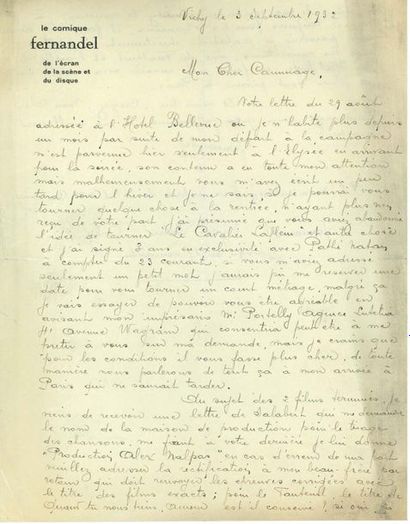 le comique
fernandel
de l'écran
de la scène et
du disque
Vichy le 3 Septembre 193
Mon Cher
Votre lettre du 29 août
adressée à l'Hotel Bellevue ou je n'habite plus depuis
un mois par suite de mon départ à la campagne
n'est parvenue hier seulement à l'Elysée en arrivant
pour la soirée, son contenu a eu toute mon attention
mais malheureusement vous m'avez écrit un peu
tard pour l'hiver et je ne sais si je pourrai vous
tourner quelque chose à la rentrée, n'ayant plus rien
reçu de votre part j'ai présumé que vous aviez abandonné
l'idée de tourner Le Cavalier Lafleur et autre chose
et j'ai signé 3 ans en exclusivité avec Pathé natan
à compter du 23 courant, si vous m'aviez adressé
seulement un petit mot j'aurais pu me reserver une
date pour vous tourner un court métrage, malgré ça
je vais essayer de pouvoir vous etre agréable en
avisant mon imprésario Mr Portelly Agence Lutetia
Avenue Wagram qui consentira peut etre a me
preter à vous sur ma demande, mais je crains que
pour les conditions il vous fasse plus cher, de toute
manière nous parlerons de tout ça à mon arrivée à
Paris qui ne saurait tarder.
Au sujet des 2 films terminés, je
viens de recevoir une lettre de Salabert qui me demande
le nom de la maison de production pour le tirage
des chansons, me fiant à votre dernière je lui donne
"Production Alex Nalpas" en cas d'erreur de ma part
veuillez adresser la rectification à mon beau-frère par
retour qui doit renvoyer les épreuves corrigées avec
le titre des films exacts; pour le Tauteuil le titre de
Quand tu nous tiens, amour est il conservé, si oui